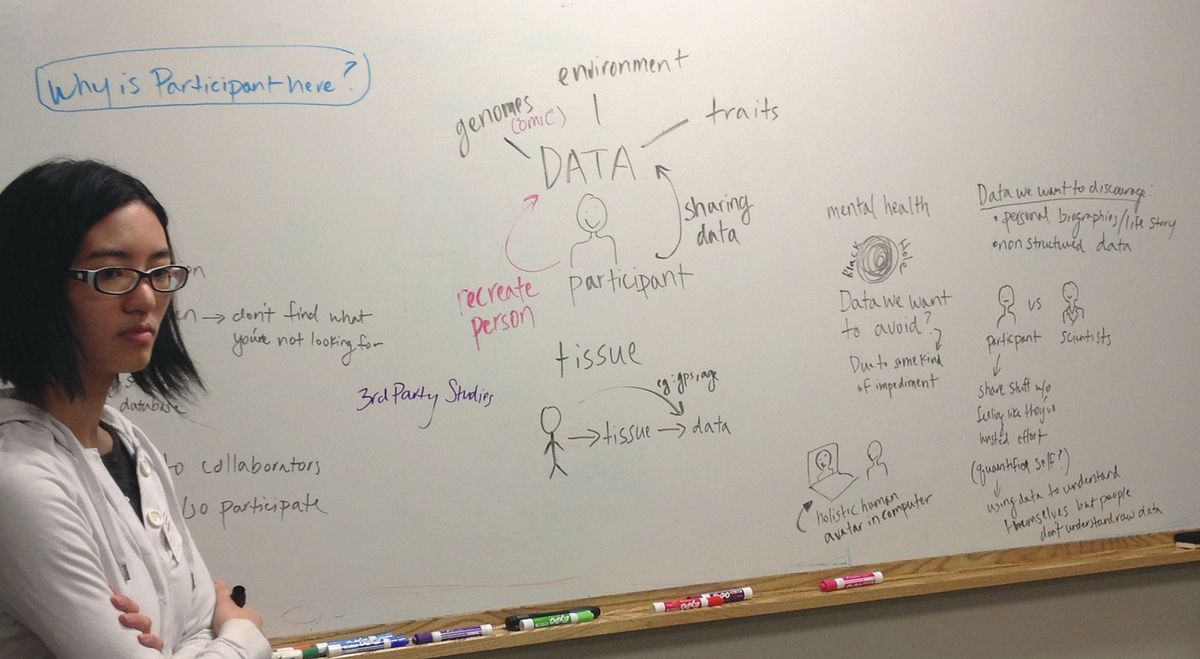 Why is Participant here?
environment
genomes
(omic)
traits
DATA
sharing
data
participant
recreate
person
tissue
eg: gps, age
→ tissue → data
3rd Party Studies
→ don't find what
you're not looking for
database
to collaborators
participate
mental health
Black Hole
Data we want
to avoid?
Due to some kind
of impediment
holistic human
avatar in computer
Data we want to discourage:
• personal biographies/life story
• non structured data
vs
participant scientists
share stuff w/o
feeling like they've
wasted effort
(quantified self?)
using data to understand
themselves but people
don't understand raw data
EXPO